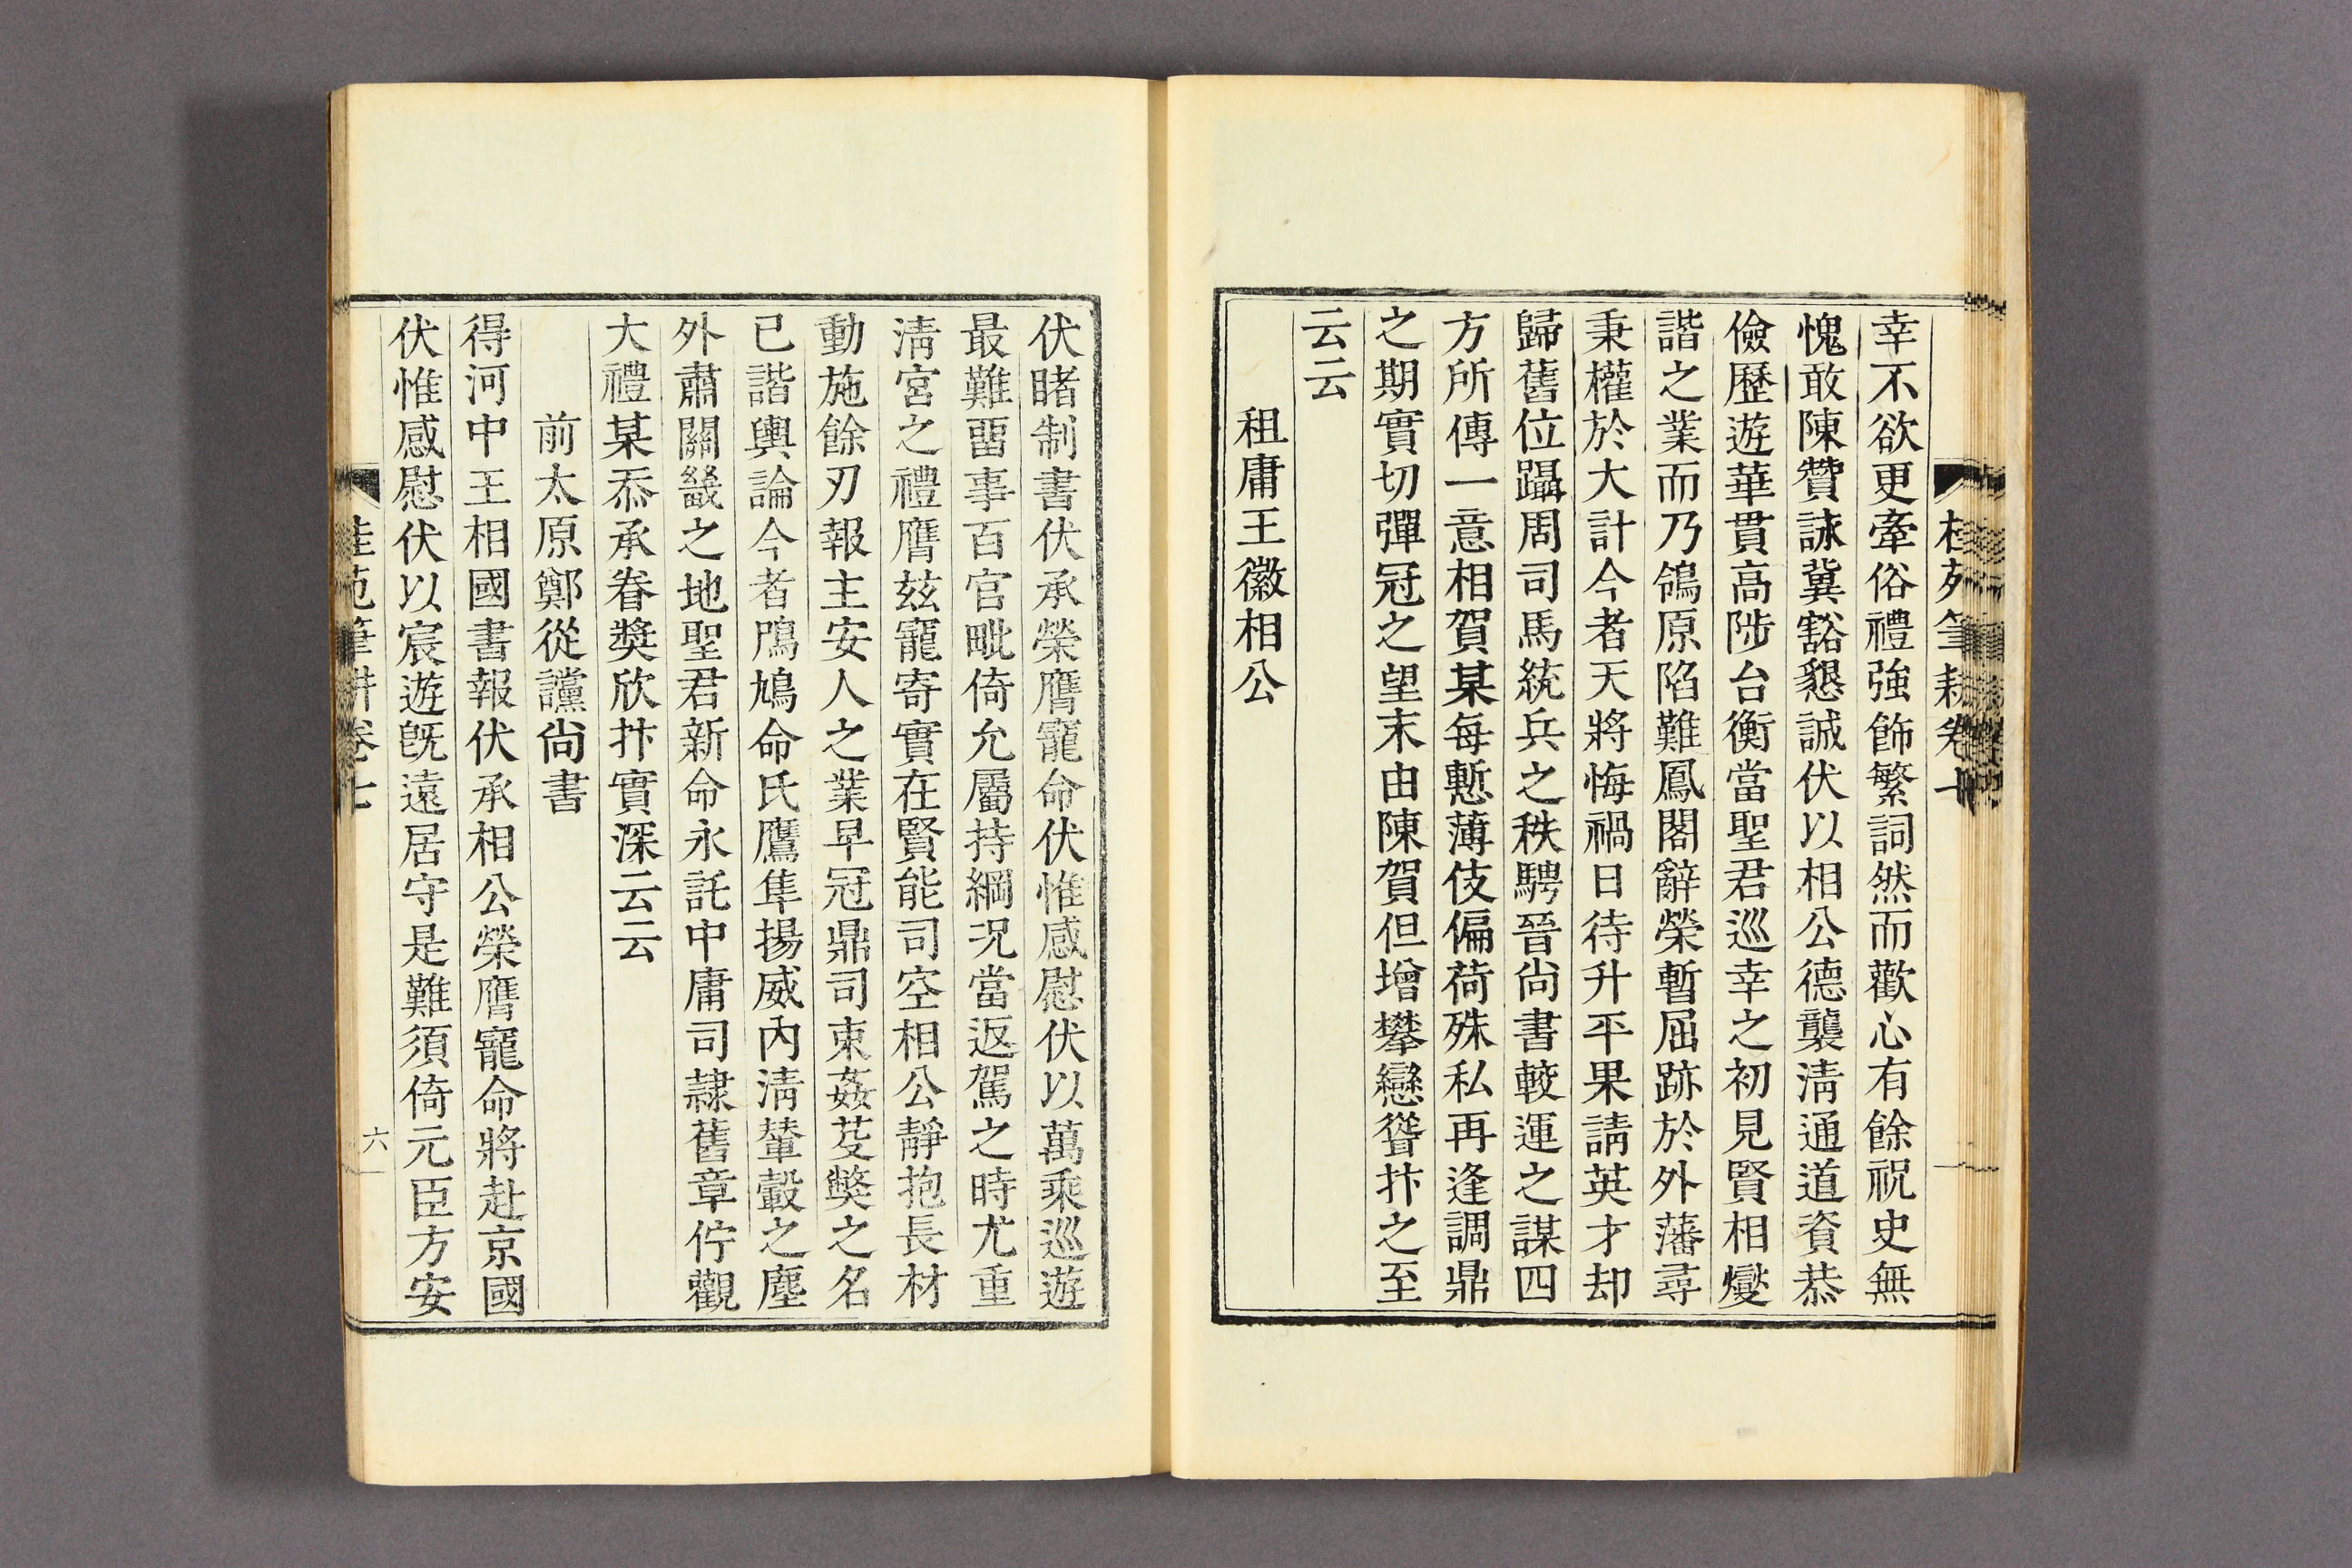 幸不欲更牽俗禮強飾繁詞然而歡心有餘祝史無
愧敢陳贊詠冀豁懇誠伏以相公德襲淸通道資恭
儉歷遊華貫高陟台衡當聖君巡幸之初見賢相燮
諧之業而乃鴒原陷難鳳閣辭榮暫屈跡於外藩尋
秉權於大計今者天將悔禍日待升平果請英才却
歸舊位躡周司馬統兵之秩騁晉尙書較運之謀四
方所傳一意相賀某每慙薄伎偏荷殊私再逢調鼎
之期實切彈冠之望末由陳賀但增攀戀聳抃之至
云云
租庸王徽相公
伏睹制書伏承榮膺寵命伏惟感慰伏以萬乘巡遊
最難畱事百官毗倚允屬持綱況當返駕之時尤重
淸宮之禮膺玆寵寄實在賢能司空相公靜抱長材
動施餘刃報主安人之業早冠鼎司束姦芟獘之名
已諧輿論今者鳲鳩命氏鷹隼揚威內淸輦轂之塵
外肅關畿之地聖君新命永託中庸司隷舊章佇觀
大禮某忝承眷奬欣抃實深云云
前太原鄭從讜尙書
得河中王相國書報伏承相公榮膺寵命將赴京國
伏惟感慰伏以宸遊旣遠居守是難須倚元臣方安
桂苑筆耕卷七
六